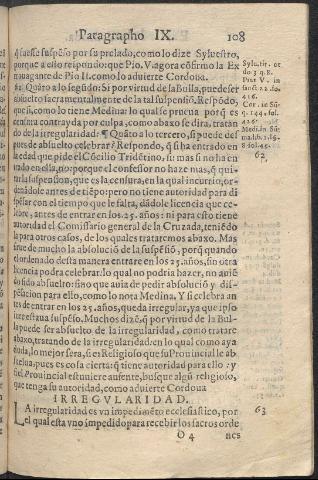 Paragrapho IX. 108
q̃ fuesse suspẽso por su prelado, como lo dize Sylvestro,
porque a ello respondo: que Pio. V. agora cõfirmo la Ex
trauagante de Pio II. como lo aduierte Cordoua.
61 Quãto a lo segũdo: Si por virtud de la Bulla, puede ser
absuelto sacramentalmente de la tal suspensiõ. Respõdo,
que si, como lo tiene Medina: lo qual se prueua porq̃ es
censura contrayda por culpa, como abaxo se dira, tratan
do de la irregularidad: ¶ Quãto a lo tercero, si puede des
pues de absuelto celebrar? Respondo, q̃ si ha entrado en
la edad que pide el Cõcilio Tridẽtino, si: mas si no ha en
trado en ella, no: porque el confessor no haze mas, q̃ qui-
tar la suspension, que es la censura, en la qual incurrio, or-
denãdole antes de tiẽpo: pero no tiene autoridad para di
spensar con el tiempo que le falta, dãdole licencia que ce-
lebre, antes de entrar en los. 25. años: ni para esto tiene
autoridad el Comissario general de la Cruzada, teniẽdo
la para otros casos, de los quales trataremos abaxo. Mas
sirue de mucho la absoluciõ de la suspẽsiõ, porq̃ quando
el ordenado desta manera entrare en los 25. años, sin otra
licencia podra celebrar: lo qual no podria hazer, no auiẽ
do sido absuelto: sino que auia de pedir absoluciõ y dis-
pẽsacion para ello, como lo nota Medina. Y si celebra an
tes de entrar en los 25. años, queda irregular, ya que ipso
iure estaua suspẽso. Muchos dizẽ, q̃ por virtud de la Bul
la puede ser absuelto de la irregularidad, como tratare
abaxo, tratando de la irregularidad: en lo qual como aya
duda, lo mejor sera, si es Religioso que su Prouincial le ab
suelua, pues es cosa cierta: q̃ tiene autoridad para ello: y
si el Prouincial estuuiere ausente, busque algũ religioso,
que tenga su autoridad, como aduierte Cordoua
IRREGVLARIDAD.
LA irregularidad es vn impedimẽto ecclesiastico, por
el qual esta vno impedido para recebir los sacros orde
O 4 nes
Sylu. tit. or
do 3 q. 8.
Pius V. in
416.
Cor. in Sũ
q. 144. fol.
425.
62
63